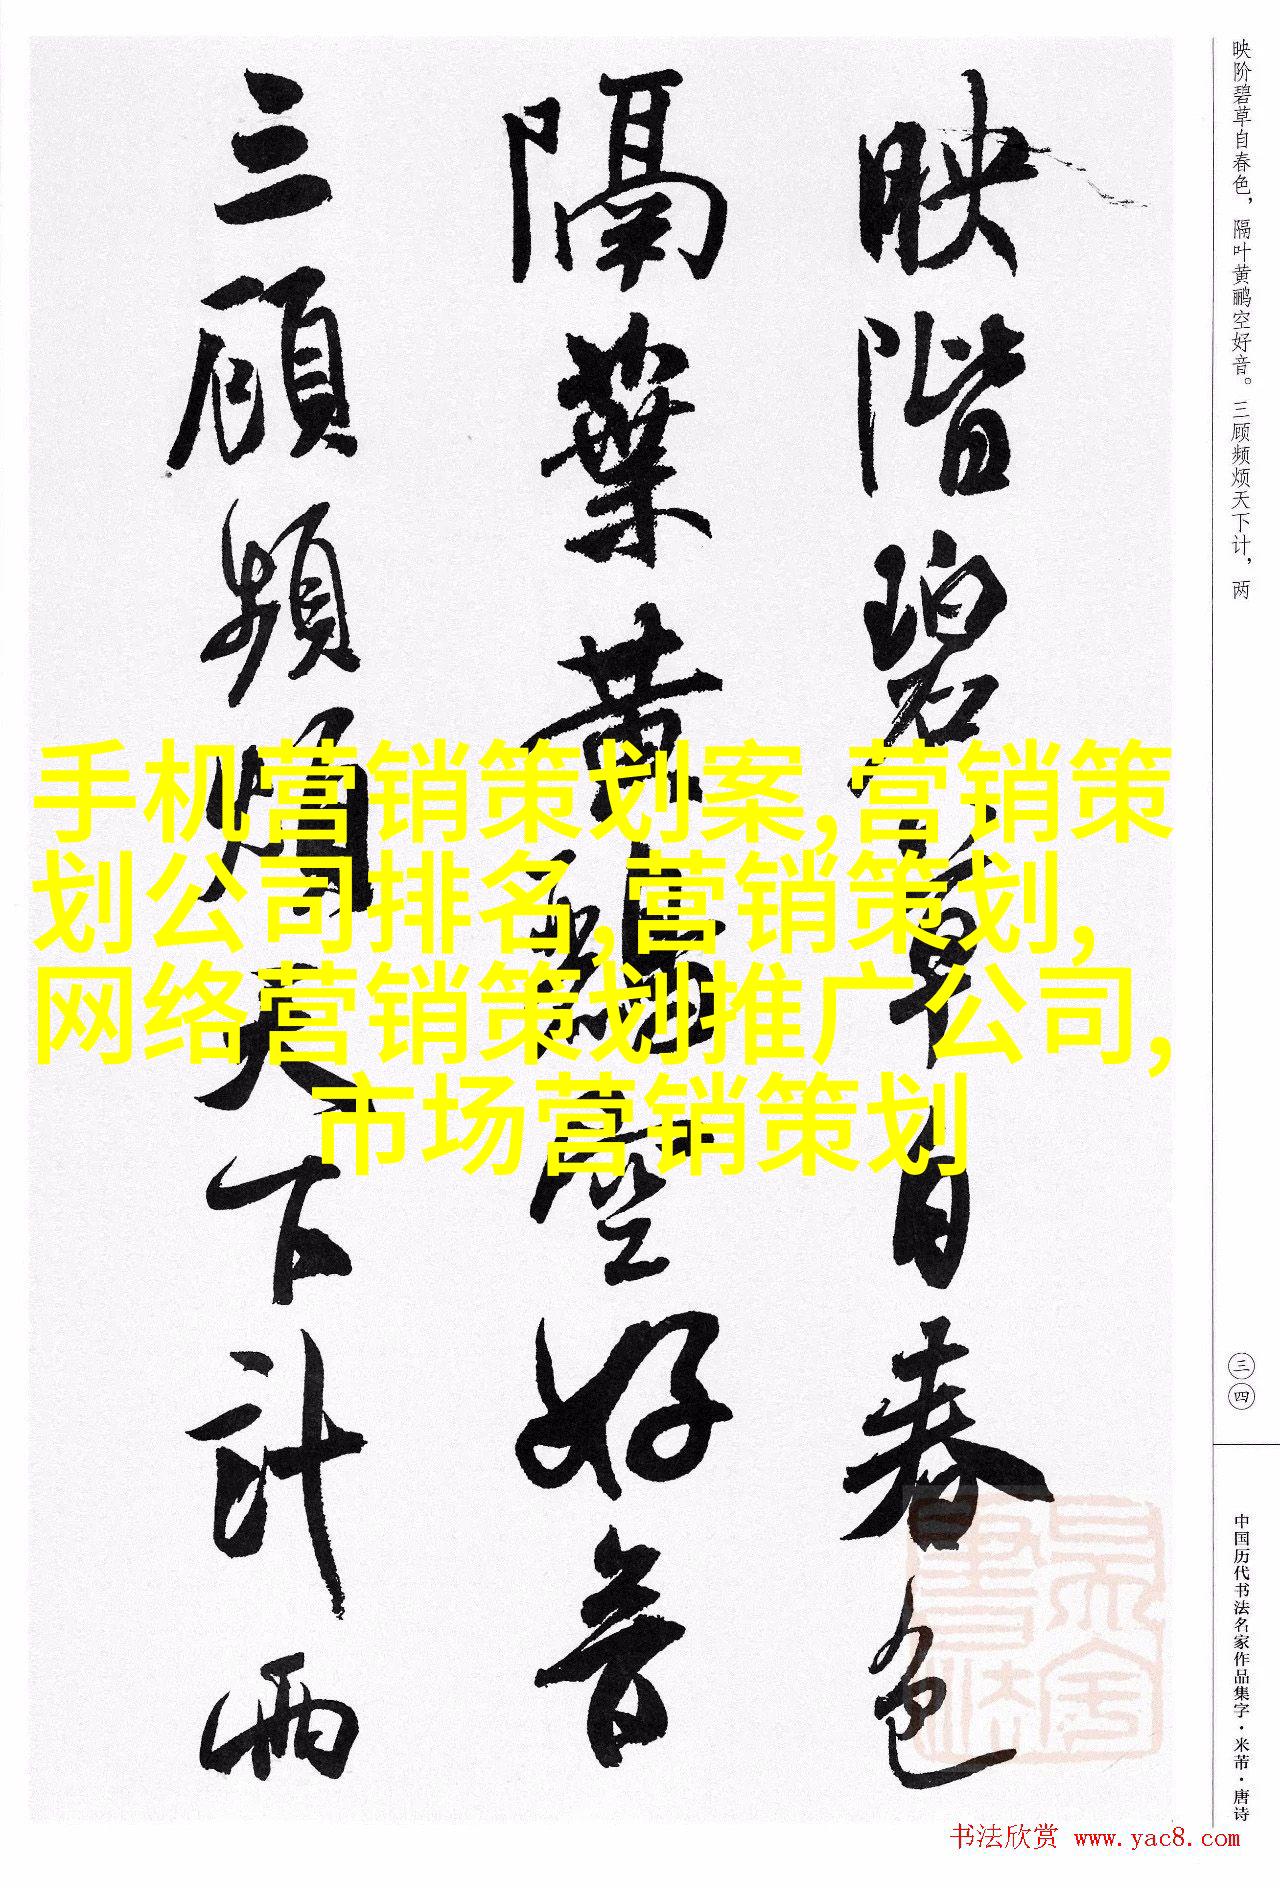 映阶碧草自春色，隔叶黄鹂空好音。三顾频烦天下计，两
映階碧草自春色
隔葉黄鸝空好音
三顧頻煩天下計两
手机营销策划案,营销策
划公司排名,营销策划,
网络营销策划推广公司,
市场营销策划
三四
中国历代书法名家作品集字·米芾·唐诗
书法欣赏 www.yac8.com